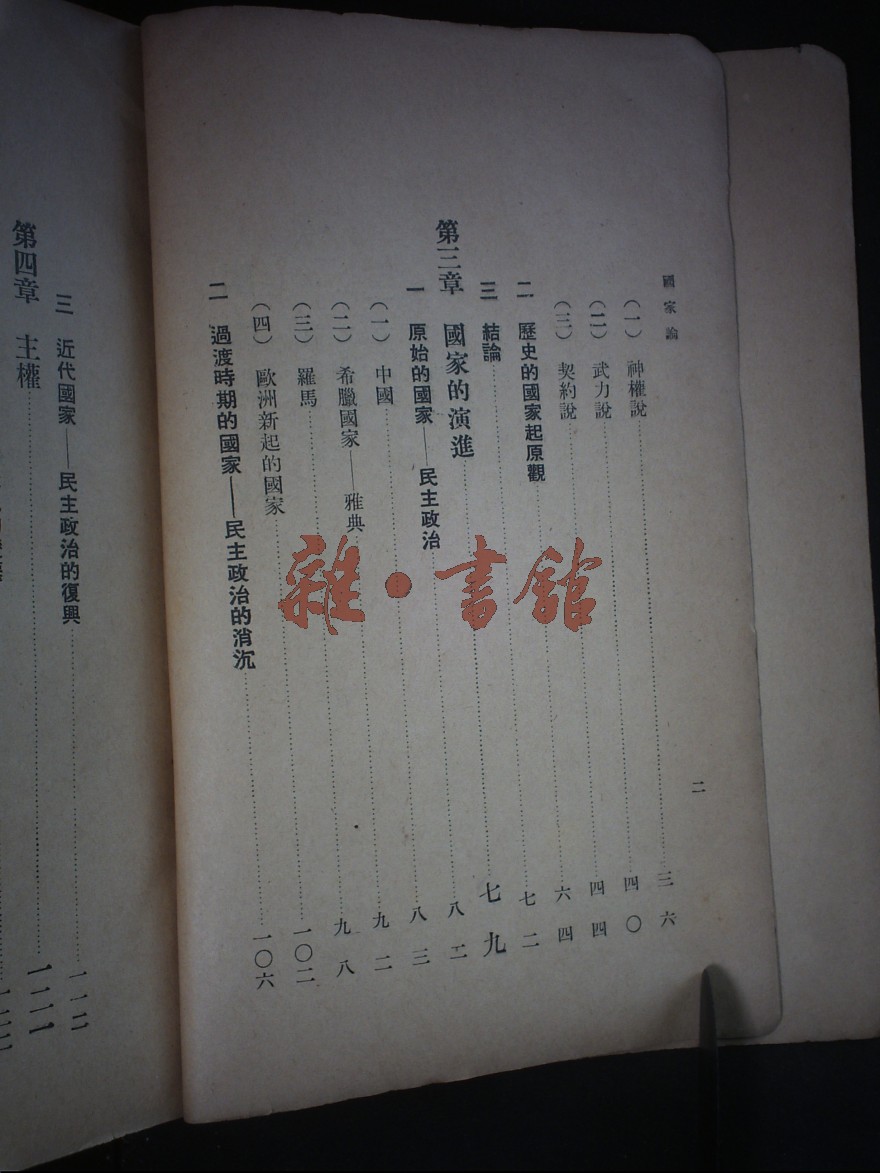 國家論
二
(一) 神權說……三六
(二) 武力說……四〇
(三) 契約說……四四
二 歷史的國家起原觀……六四
三 結論……七二
第三章 國家的演進……七九
一 原始的國家——民主政治……八二
(一) 中國……八三
(二) 希臘國家——雅典……九二
(三) 羅馬……九八
(四) 歐洲新起的國家……一〇二
二 過渡時期的國家——民主政治的消沉……一〇六
三 近代國家——民主政治的復興……一一二
第四章 主權……一二一
雜·書館